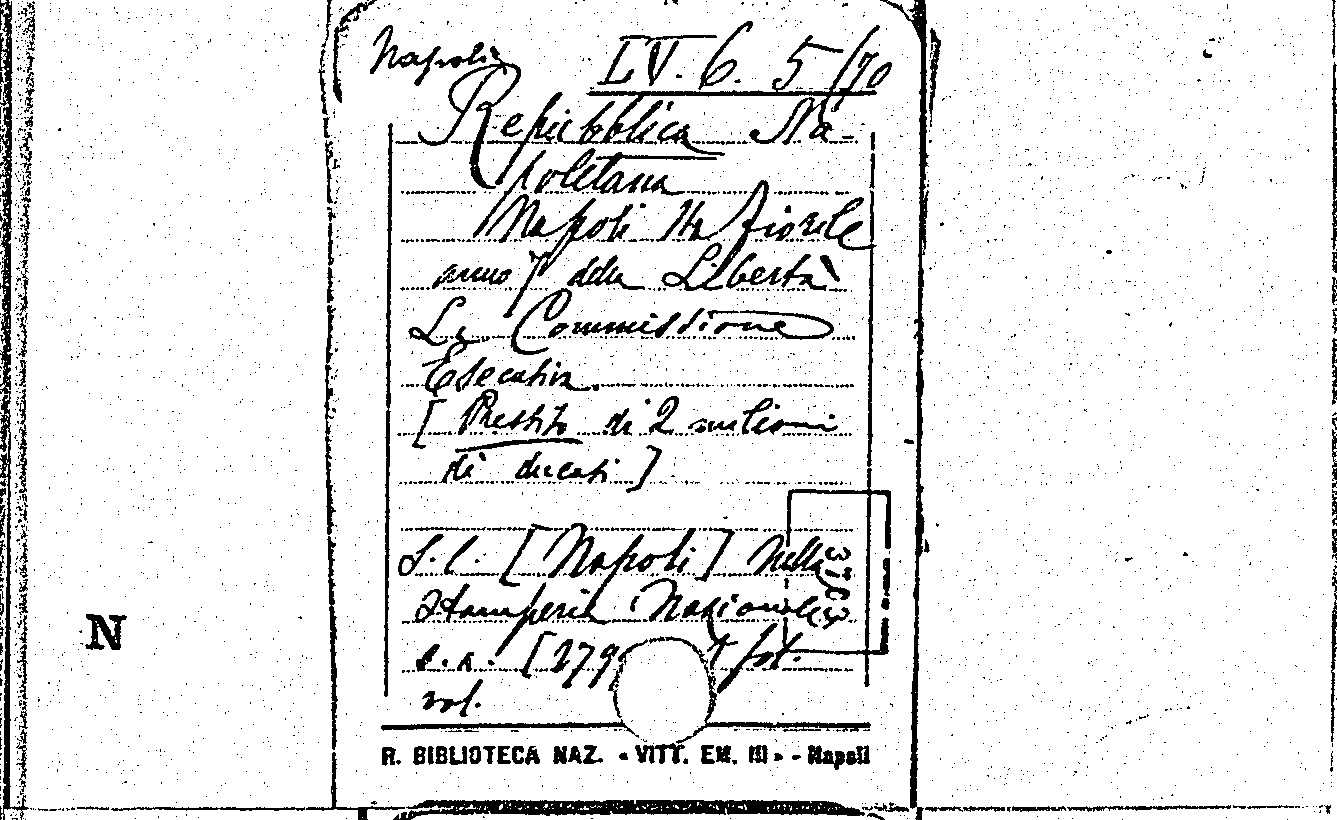 Napoli LV. 6. 5/70
Repubblica Na-
poletana
Napoli fiorile
anno 7 della Libertà
La Commissione
Esecutiva.
[ Prestito di 2 milioni
di ducati ]
S. l. [ Napoli ] Nella
Stamperia Nazionale
s. a. [ 179 fol.
vol.
R. BIBLIOTECA NAZ. « VITT. EM. III » - Napoli
N